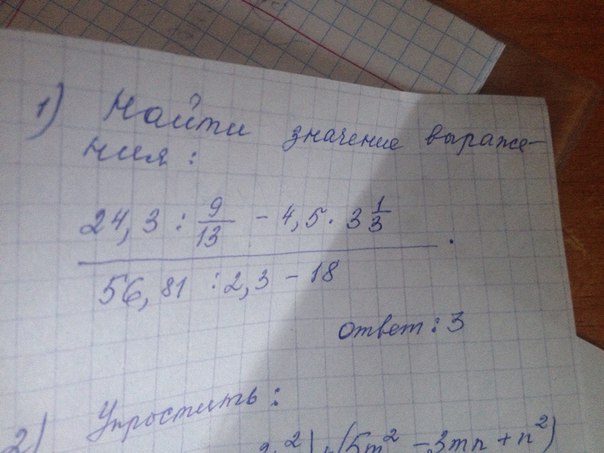 1) Найти значение выраже-
ния:
24,3 : 9/13 - 4,5 · 3 1/3
56,81 : 2,3 - 18
ответ: 3
2) Упростить:
(5m² - 3mn + n²)